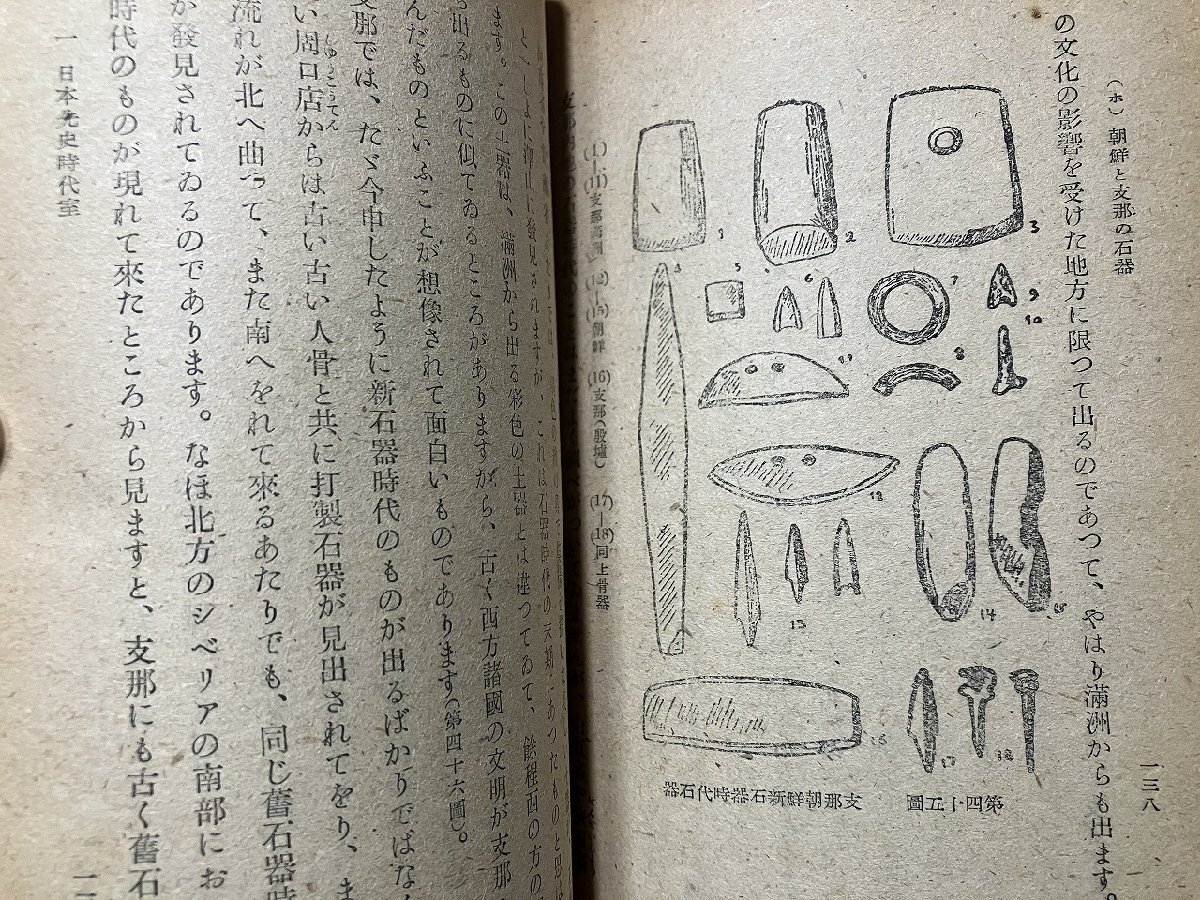 一三八
(ホ) 朝鮮と支那の石器
の文化の影響を受けた地方に限つて出るのであつて、やはり滿洲からも出ます。
1
2
3
4
5
6
7
8
9
10
11
12
13
14
15
16
17
18
第四十五圖 支那朝鮮新石器時代石器
(1)—(11)支那 (12)—(15)朝鮮 (16)支那(殷墟) (17)—(18)同上骨器
ます。この土器は、滿洲から出る彩色の土器とは違つてゐて、餘程西の方の
出るものに似てゐるところがありますから、古く西方諸國の文明が支那
んだものといふことが想像されて面白いものであります(第四十六圖)。
支那では、たゞ今申したように新石器時代のものが出るばかりではなく
い周口店からは古い古い人骨と共に打製石器が見出されてをり、ま
しゆこうてん
流れが北へ曲つて、また南へをれて來るあたりでも、同じ舊石器時
が發見されてゐるのであります。なほ北方のシベリアの南部にお
時代のものが現れて來たところから見ますと、支那にも古く舊石
一 日本先史時代室